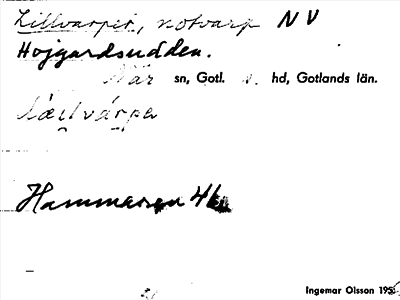 Lillvarpet, notvarp NV
Hojgardsudden.
När sn, Gotl. hd, Gotlands län.
Hammaren 4
Ingemar Olsson 195